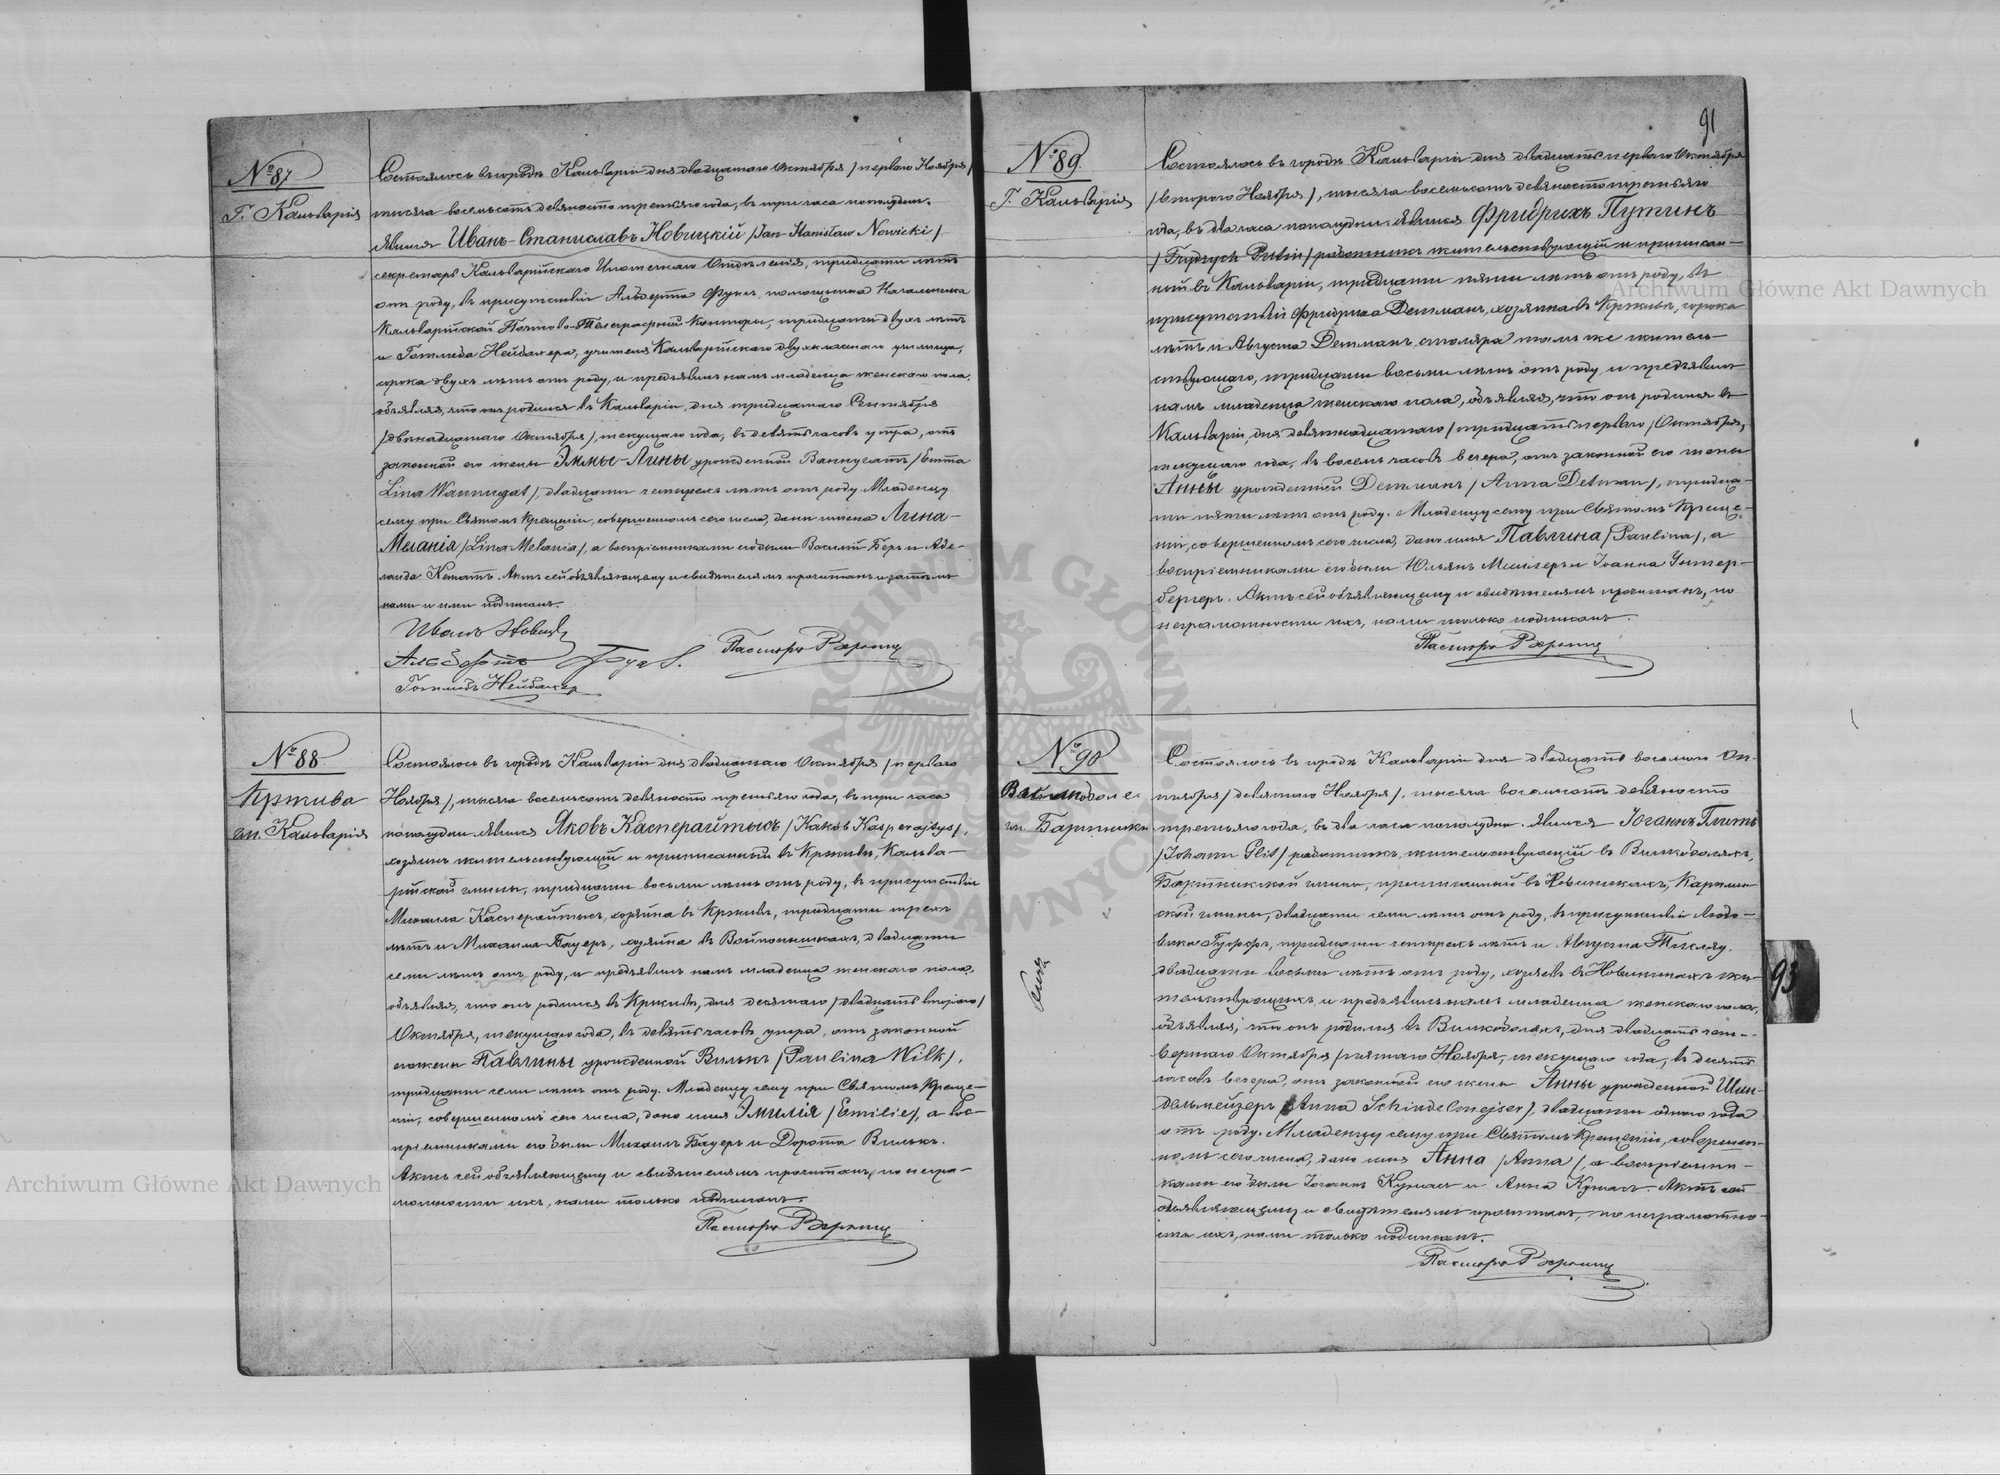 91
№ 87
Г. Кальварія
Состоялось въ городѣ Кальваріи дня двадцатаго Октября /перваго Ноября/
тысяча восемьсотъ девяносто третьяго года, въ три часа пополудни.
Явился Иванъ-Станиславъ Новицкій /Jan-Stanisław Nowicki/
секретарь Кальварійскаго Ипотечнаго Отдѣленія, тридцати лѣтъ
отъ роду, въ присутствіи Альберта Фукс, помощника Начальника
Кальварійской Почтово-Телеграфной Конторы, тридцати двухъ лѣтъ
и Готлиба Нейбахера, учителя Кальварійскаго двухкласснаго училища,
сорока двухъ лѣтъ отъ роду, и предъявилъ намъ младенца женскаго пола,
объявляя, что онъ родился въ Кальваріи, дня тридцатаго Сентября
/двѣнадцатаго Октября/, текущаго года, въ девять часовъ утра, отъ
законной его жены Эммы-Лины урожденной Ваннугатъ /Emma
Lina Wannugat/, двадцати четырехъ лѣтъ отъ роду. Младенцу
сему при Святомъ Крещеніи, совершенномъ сего числа, даны имена Лина-
Меланія /Lina Melania/, а воспріемниками его были Василій Беръ и Аде-
лаида Кематъ. Актъ сей объявляющему и свидѣтелямъ прочитанъ и затѣмъ
нами и ими подписанъ.
Иванъ Новицкій
Альбертъ
Готлибъ Нейбахер
Пасторъ
№ 88
Кржива
гм. Кальварія
Состоялось въ городѣ Кальваріи дня двадцатаго Октября /перваго
Ноября/, тысяча восемьсотъ девяносто третьяго года, въ три часа
пополудни. Явился Яковъ Касперайтысъ /Kakób Kasperajtys/,
хозяинъ жительствующій и приписанный въ Крживѣ, Кальва-
рійской гмины, тридцати восьми лѣтъ отъ роду, въ присутствіи
Михаила Касперайтысъ, хозяина въ Крживѣ, тридцати трехъ
лѣтъ и Михаила Бауеръ, хозяина въ Войпонишкахъ, двадцати
семи лѣтъ отъ роду, и предъявилъ намъ младенца женскаго пола,
объявляя, что онъ родился въ Крживѣ, дня десятаго /двадцать втораго/
Октября, текущаго года, въ девять часовъ утра, отъ законной
его жены Павлины урожденной Вилькъ /Paulina Wilk/,
тридцати семи лѣтъ отъ роду. Младенцу сему при Святомъ Креще-
ніи, совершенномъ сего числа, дано имя Эмилія /Emilie/, а вос-
пріемниками его были Михаилъ Бауеръ и Доротa Вилькъ.
Актъ сей объявляющему и свидѣтелямъ прочитанъ, по негра-
мотности ихъ, нами только подписанъ.
Пасторъ
№ 89
Г. Кальварія
Состоялось въ городѣ Кальваріи дня двадцать перваго Октября
/втораго Ноября/, тысяча восемьсотъ девяносто третьяго
года, въ два часа пополудни. Явился Фридрихъ Путинъ
/Frydrych Putin/ работникъ жительствующій и приписан-
ный въ Кальваріи, тридцати пяти лѣтъ отъ роду, въ
присутствіи Фридриха Детманъ, хозяина въ Крживѣ, сорока
лѣтъ и Августа Детманъ, столяра тамъ же житель-
ствующаго, тридцати восьми лѣтъ отъ роду, и предъявилъ
намъ младенца женскаго пола, объявляя, что онъ родился въ
Кальваріи, дня девятнадцатаго /тридцать перваго/ Октября,
текущаго года, въ восемь часовъ вечера, отъ законной его жены
Анны урожденной Детманъ /Anna Detman/, тридца-
ти пяти лѣтъ отъ роду. Младенцу сему при Святомъ Креще-
ніи, совершенномъ сего числа, дано имя Павлина /Paulina/, а
воспріемниками его были Юльянъ Мейлеръ и Іоанна Унтер-
бергеръ. Актъ сей объявляющему и свидѣтелямъ прочитанъ, по
неграмотности ихъ, нами только подписанъ.
Пасторъ
№ 90
гм. Бартники
Состоялось въ городѣ Кальваріи дня двадцать восьмаго Ок-
тября /девятаго Ноября/, тысяча восемьсотъ девяносто
третьяго года, въ два часа пополудни. Явился Іоганнъ Глитъ
/Johann Glit/ работникъ, жительствующій въ
Бартникской гмины, приписанный въ Новиникахъ,
ской гмины, двадцати семи лѣтъ отъ роду, въ присутствіи Людо-
вика тридцати четырехъ лѣтъ и Августа
двадцати восьми лѣтъ отъ роду, хозяевъ въ Новиникахъ жи-
тельствующихъ и предъявилъ намъ младенца женскаго пола,
объявляя, что онъ родился въ дня двадцать чет-
вертаго Октября /пятаго Ноября/, текущаго года, въ десять
часовъ вечера, отъ законной его жены Анны урожденной Шин-
дельмейзеръ /Anna Schindelmejser/, двадцати одного года
отъ роду. Младенцу сему при Святомъ Крещеніи, совершен-
номъ сего числа, дано имя Анна /Anna/, а воспріемни-
ками его были Іоганнъ Кумасъ и Анна Кумасъ. Актъ сей
объявляющему и свидѣтелямъ прочитанъ, по неграмотно-
сти ихъ, нами только подписанъ.
Пасторъ
93
Archiwum Główne Akt Dawnych
Archiwum Główne Akt Dawnych
ARCHIWUM GŁÓWNE AKT DAWNYCH